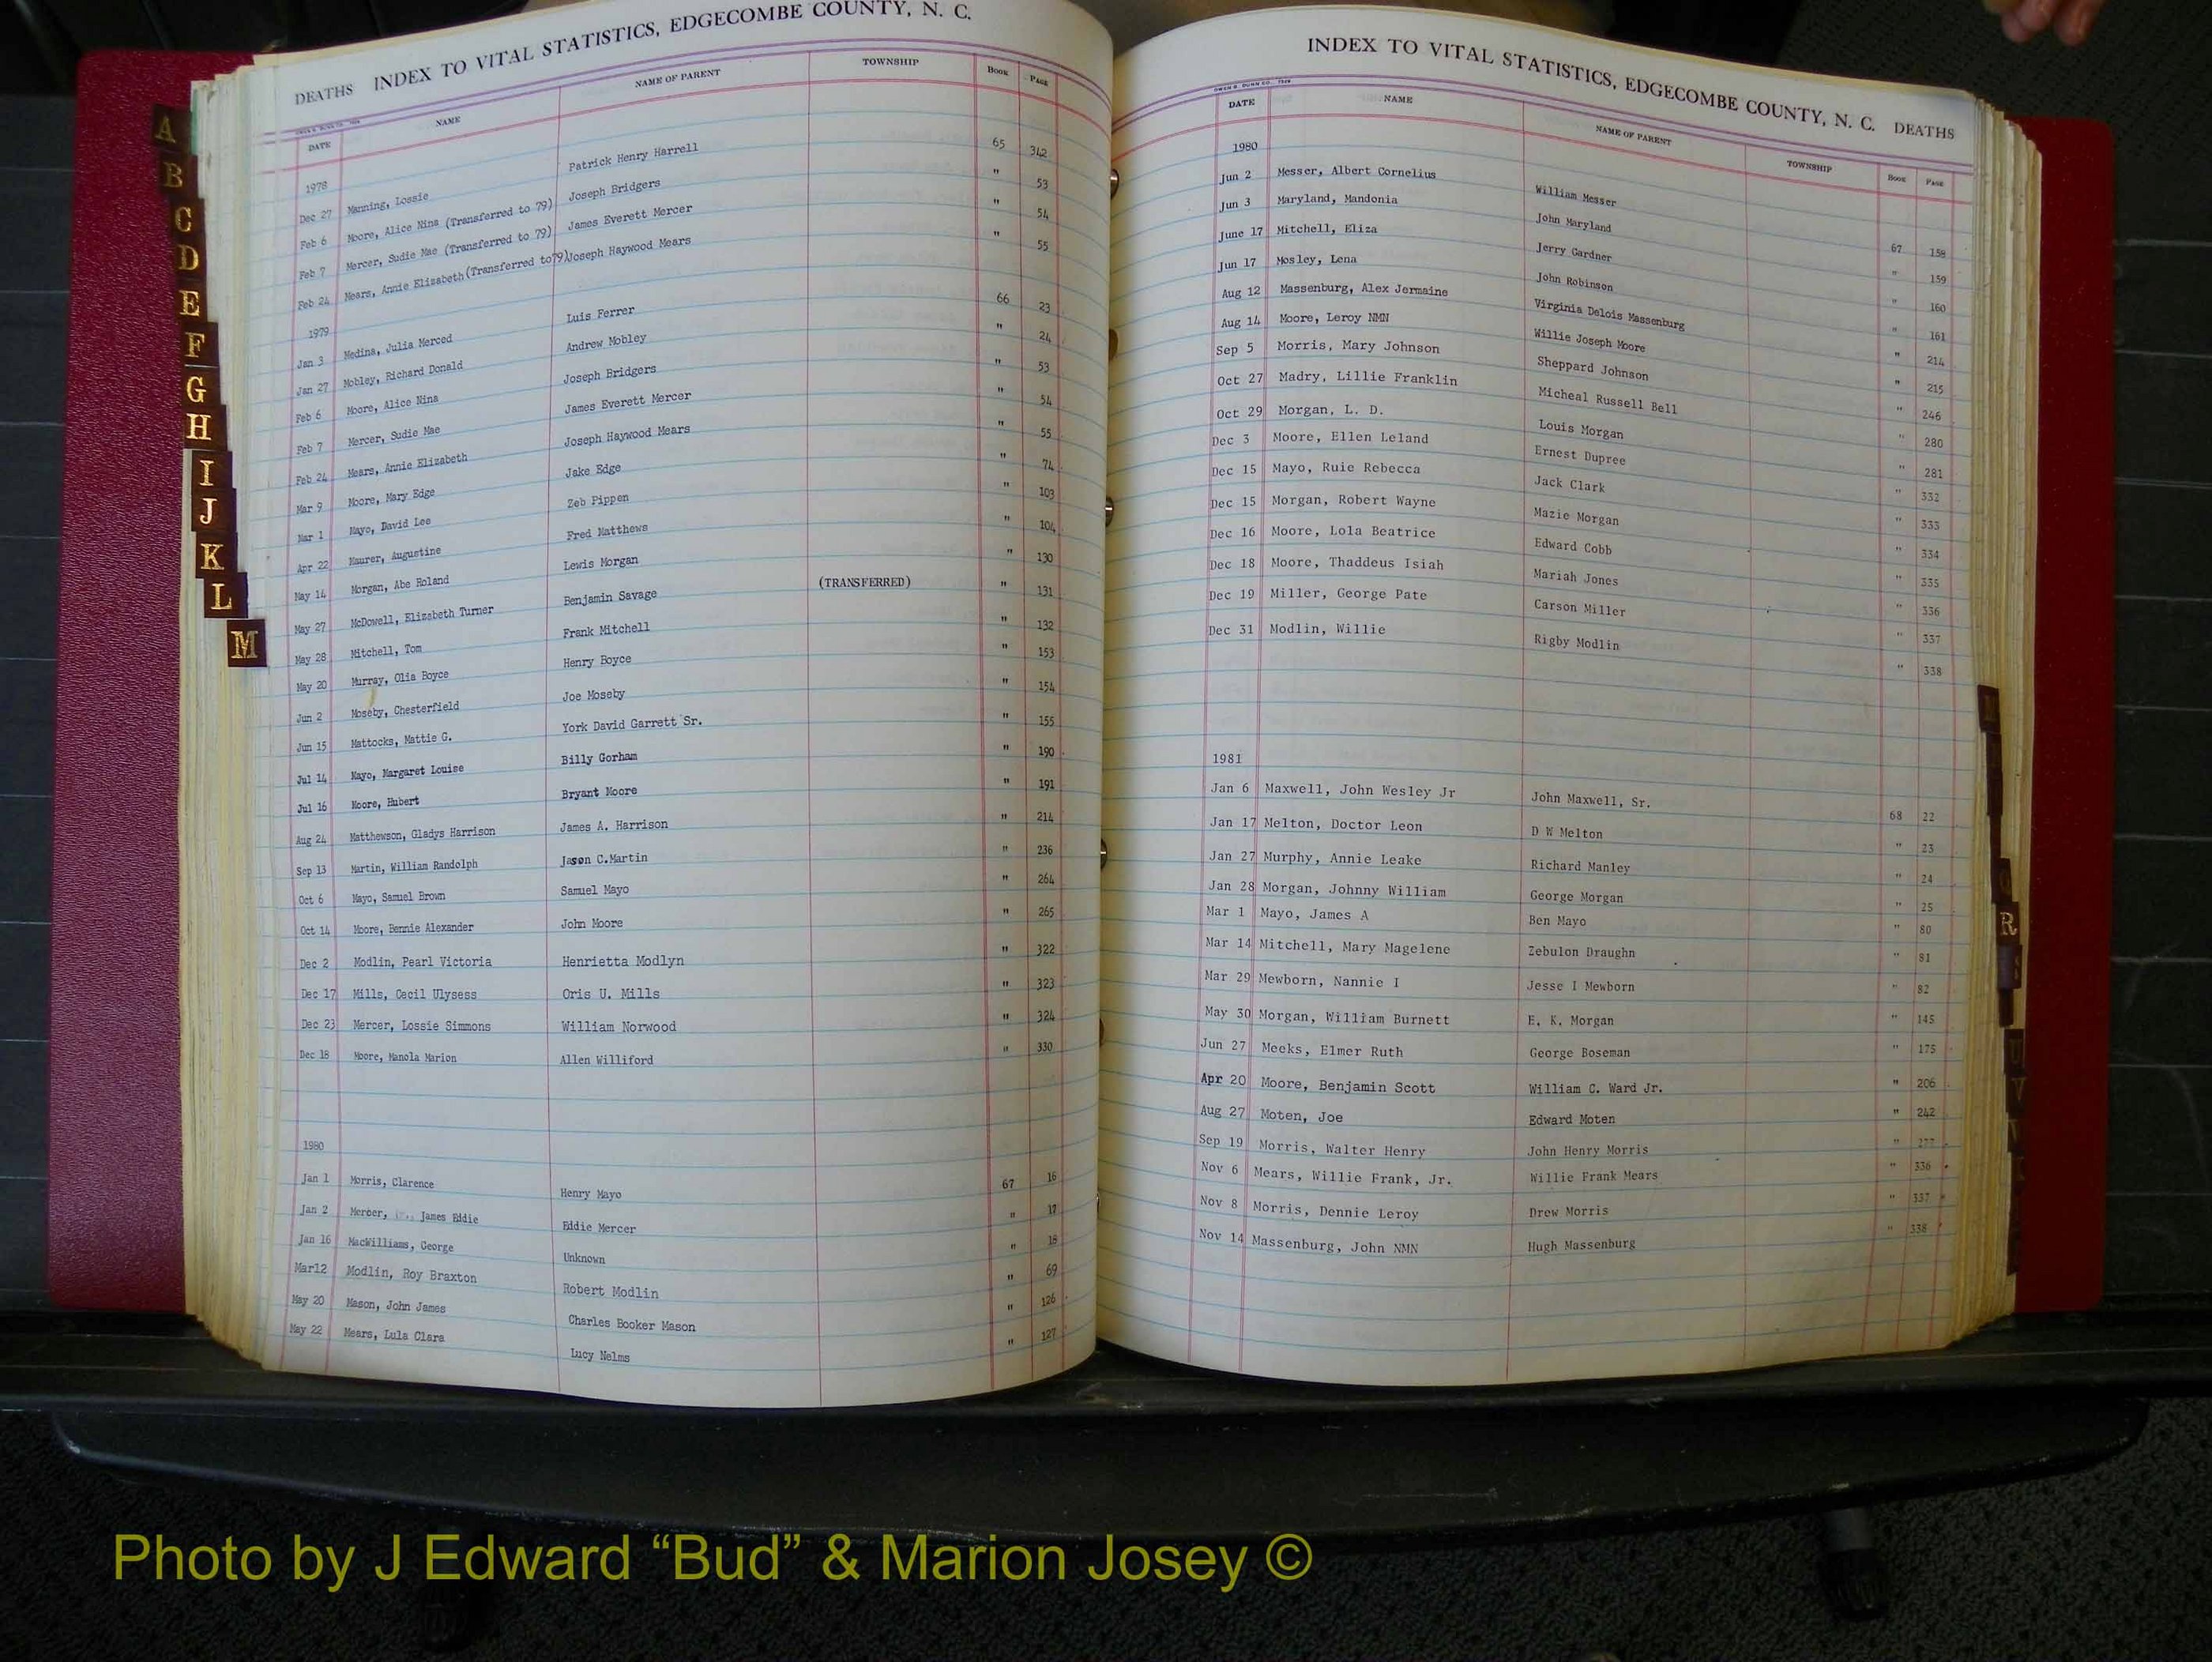 DEATHS INDEX TO VITAL STATISTICS, EDGECOMBE COUNTY, N. C.
DATE NAME NAME OF PARENT TOWNSHIP BOOK PAGE
1978
Dec 27 Manning, Lossie Patrick Henry Harrell 65 342
Feb 6 Moore, Alice Nina (Transferred to 79) Joseph Bridgers " 53
Feb 7 Mercer, Sudie Mae (Transferred to 79) James Everett Mercer " 54
Feb 24 Mears, Annie Elizabeth (Transferred to79) Joseph Haywood Mears " 55
1979
Jan 3 Medina, Julia Merced Luis Ferrer 66 23
Jan 27 Mobley, Richard Donald Andrew Mobley " 24
Feb 6 Moore, Alice Nina Joseph Bridgers " 53
Feb 7 Mercer, Sudie Mae James Everett Mercer " 54
Feb 24 Mears, Annie Elizabeth Joseph Haywood Mears " 55
Mar 9 Moore, Mary Edge Jake Edge " 74
Mar 1 Mayo, David Lee Zeb Pippen " 103
Apr 22 Maurer, Augustine Fred Matthews " 104
May 14 Morgan, Abe Roland Lewis Morgan " 130
May 27 McDowell, Elizabeth Turner Benjamin Savage (TRANSFERRED) " 131
May 28 Mitchell, Tom Frank Mitchell " 132
May 20 Murray, Olia Boyce Henry Boyce " 153
Jun 2 Moseby, Chesterfield Joe Moseby " 154
Jun 15 Mattocks, Mattie G. York David Garrett Sr. " 155
Jul 14 Mayo, Margaret Louise Billy Gorham " 190
Jul 16 Moore, Hubert Bryant Moore " 191
Aug 24 Matthewson, Gladys Harrison James A. Harrison " 214
Sep 13 Martin, William Randolph Jason C.Martin " 236
Oct 6 Mayo, Samuel Brown Samuel Mayo " 264
Oct 14 Moore, Bennie Alexander John Moore " 265
Dec 2 Modlin, Pearl Victoria Henrietta Modlyn " 322
Dec 17 Mills, Cecil Ulysess Oris U. Mills " 323
Dec 23 Mercer, Lossie Simmons William Norwood " 324
Dec 18 Moore, Manola Marion Allen Williford " 330
1980
Jan 1 Morris, Clarence Henry Mayo 67 16
Jan 2 Mercer, James Eddie Eddie Mercer " 17
Jan 16 MacWilliams, George Unknown " 18
Mar12 Modlin, Roy Braxton Robert Modlin " 69
May 20 Mason, John James Charles Booker Mason " 126
May 22 Mears, Lula Clara Lucy Nelms " 127
A
B
C
D
E
F
G
H
I
J
K
L
M
INDEX TO VITAL STATISTICS, EDGECOMBE COUNTY, N. C. DEATHS
DATE NAME NAME OF PARENT TOWNSHIP BOOK PAGE
1980
Jun 2 Messer, Albert Cornelius William Messer 67 158
Jun 3 Maryland, Mandonia John Maryland " 159
June 17 Mitchell, Eliza Jerry Gardner " 160
Jun 17 Mosley, Lena John Robinson " 161
Aug 12 Massenburg, Alex Jermaine Virginia Delois Massenburg " 214
Aug 14 Moore, Leroy NMN Willie Joseph Moore " 215
Sep 5 Morris, Mary Johnson Sheppard Johnson " 246
Oct 27 Madry, Lillie Franklin Micheal Russell Bell " 280
Oct 29 Morgan, L. D. Louis Morgan " 281
Dec 3 Moore, Ellen Leland Ernest Dupree " 332
Dec 15 Mayo, Ruie Rebecca Jack Clark " 333
Dec 15 Morgan, Robert Wayne Mazie Morgan " 334
Dec 16 Moore, Lola Beatrice Edward Cobb " 335
Dec 18 Moore, Thaddeus Isiah Mariah Jones " 336
Dec 19 Miller, George Pate Carson Miller " 337
Dec 31 Modlin, Willie Rigby Modlin " 338
1981
Jan 6 Maxwell, John Wesley Jr John Maxwell, Sr. 68 22
Jan 17 Melton, Doctor Leon D W Melton " 23
Jan 27 Murphy, Annie Leake Richard Manley " 24
Jan 28 Morgan, Johnny William George Morgan " 25
Mar 1 Mayo, James A Ben Mayo " 80
Mar 14 Mitchell, Mary Magelene Zebulon Draughn " 81
Mar 29 Mewborn, Nannie I Jesse I Mewborn " 82
May 30 Morgan, William Burnett E. K. Morgan " 145
Jun 27 Meeks, Elmer Ruth George Boseman " 175
Apr 20 Moore, Benjamin Scott William C. Ward Jr. " 206
Aug 27 Moten, Joe Edward Moten " 242
Sep 19 Morris, Walter Henry John Henry Morris " 277
Nov 6 Mears, Willie Frank, Jr. Willie Frank Mears " 336
Nov 8 Morris, Dennie Leroy Drew Morris " 337
Nov 14 Massenburg, John NMN Hugh Massenburg " 338
R
Photo by J Edward “Bud” & Marion Josey ©